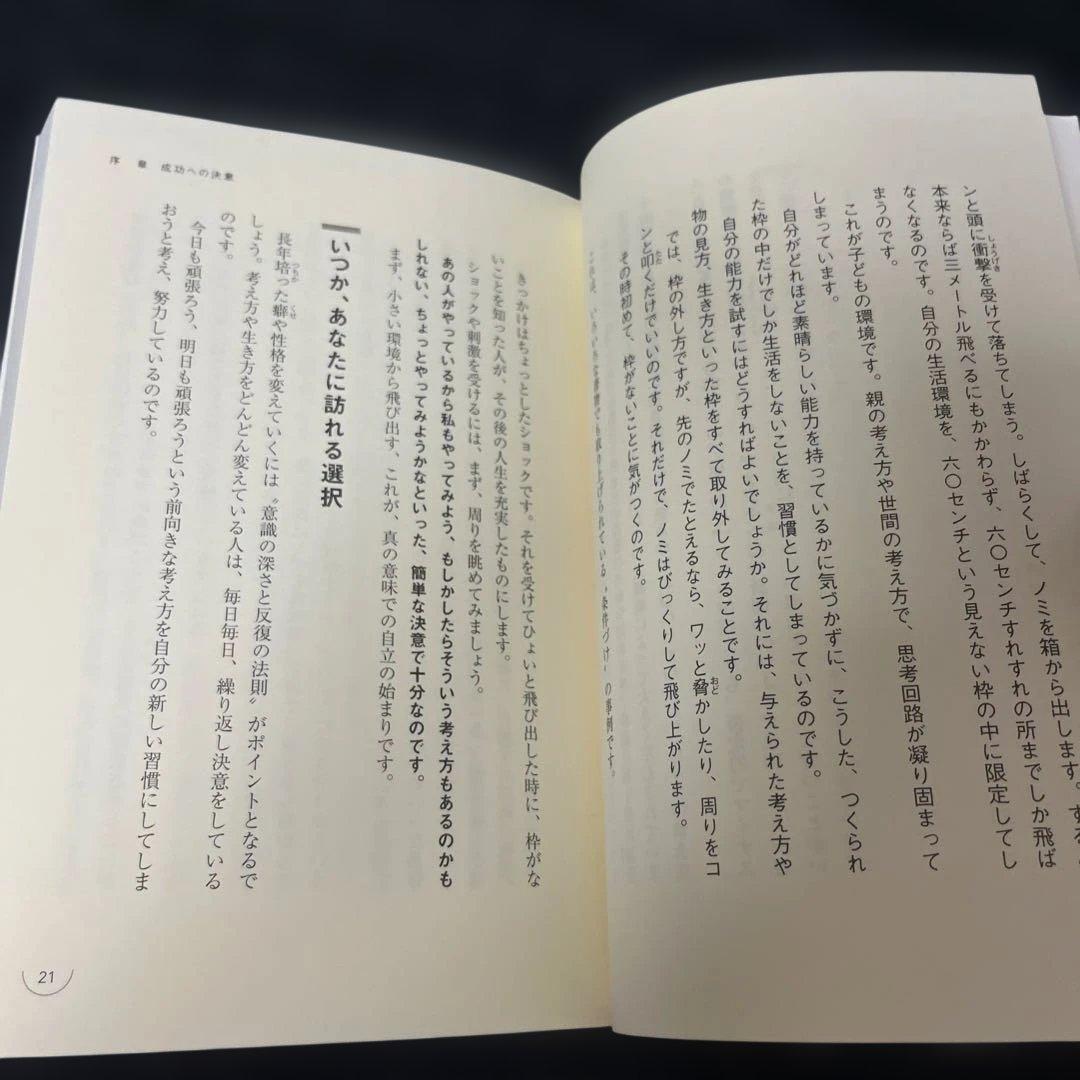 ンと頭に衝撃を受けて落ちてしまう。しばらくして、ノミを箱から出します。する
本来ならば三メートル飛べるにもかかわらず、六〇センチすれすれの所までしか飛ば
なくなるのです。自分の生活環境を、六〇センチという見えない枠の中に限定してし
まうのです。
これが子どもの環境です。親の考え方や世間の考え方で、思考回路が凝り固まって
しまっています。
自分がどれほど素晴らしい能力を持っているかに気づかずに、こうした、つくられ
た枠の中だけでしか生活をしないことを、習慣としてしまっているのです。
自分の能力を試すにはどうすればよいでしょうか。それには、与えられた考え方や
物の見方、生き方といった枠をすべて取り外してみることです。
では、枠の外し方ですが、先のノミでたとえるなら、ワッと脅かしたり、周りをコ
ンと叩くだけでいいのです。それだけで、ノミはびっくりして飛び上がります。
その時初めて、枠がないことに気がつくのです。
取り上げられている〝条件づけ〟の事例です。
きっかけはちょっとしたショックです。それを受けてひょいと飛び出した時に、枠がな
いことを知った人が、その後の人生を充実したものにします。
ショックや刺激を受けるには、まず、周りを眺めてみましょう。
あの人がやっているから私もやってみよう、もしかしたらそういう考え方もあるのかも
しれない、ちょっとやってみようかなといった、簡単な決意で十分なのです。
まず、小さい環境から飛び出す、これが、真の意味での自立の始まりです。
いつか、あなたに訪れる選択
長年培った癖や性格を変えていくには〝意識の深さと反復の法則〟がポイントとなるで
しょう。考え方や生き方をどんどん変えている人は、毎日毎日、繰り返し決意をしている
のです。
今日も頑張ろう、明日も頑張ろうという前向きな考え方を自分の新しい習慣にしてしま
おうと考え、努力しているのです。
序　章　成功への決意
21